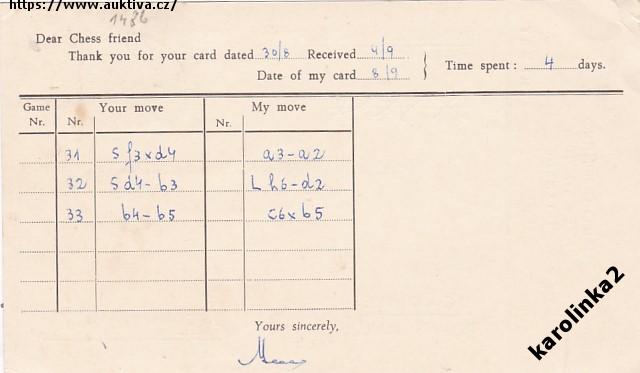 https://www.auktiva.cz/
1436
Dear Chess friend
Thank you for your card dated 30/8 Received 4/9
Date of my card 8/9
Time spent: 4 days.
Game Nr. Your move My move
Nr. Nr.
31 Sf3xd4 a3-a2
32 Sd4-b3 Lh6-d2
33 b4-b5 c6xb5
Yours sincerely,
karolinka2